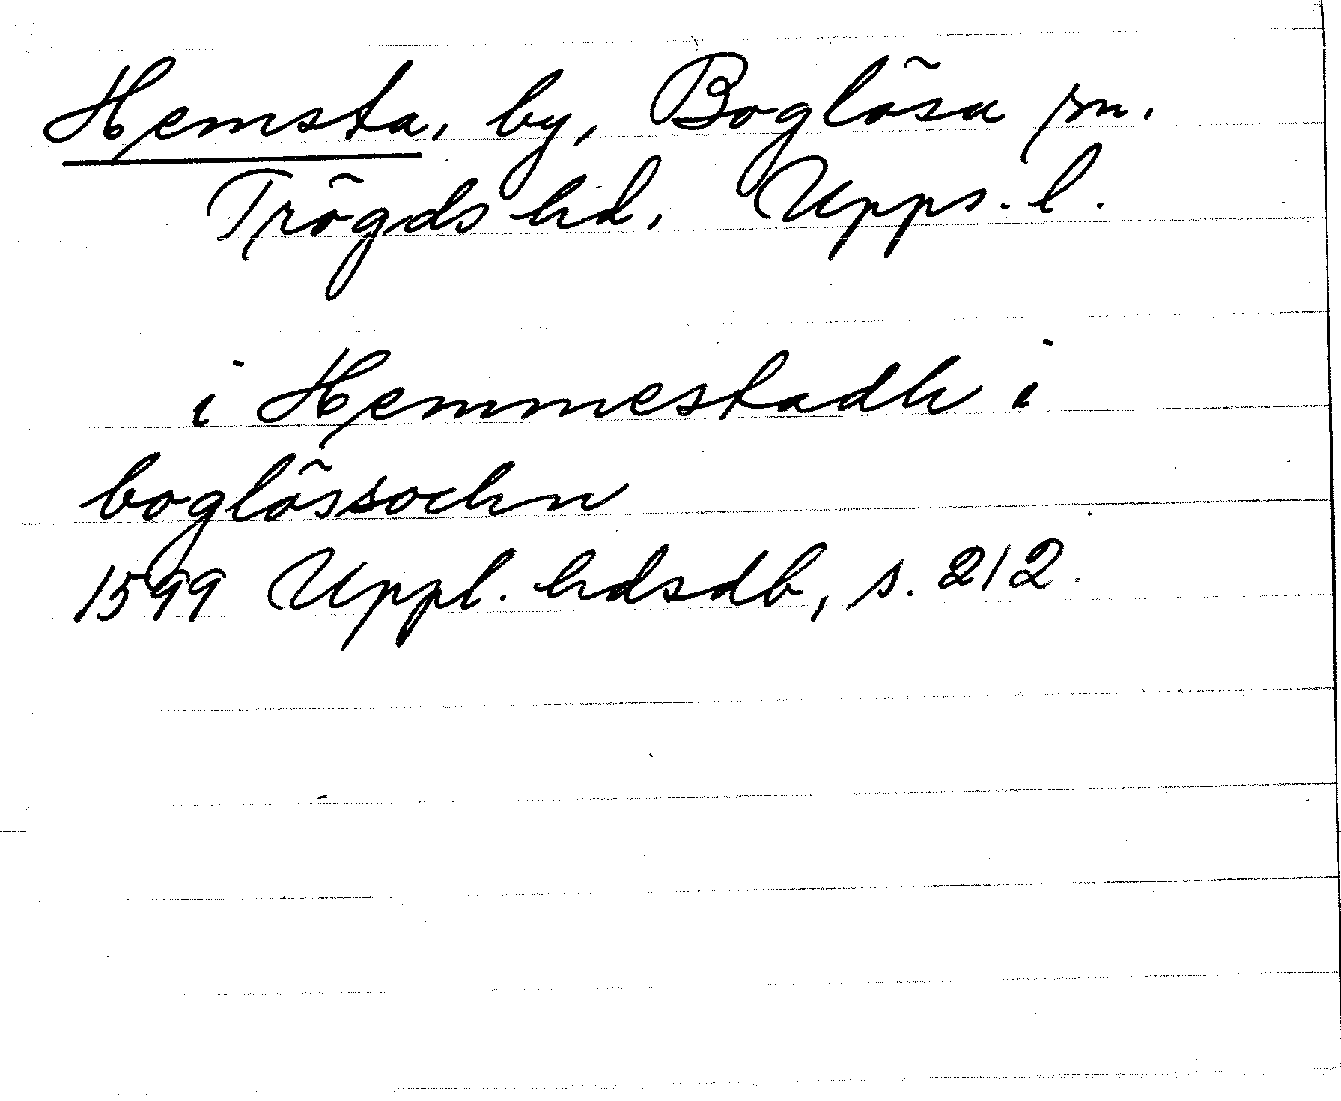 Hemsta, by, Boglösa sn.
Trögds hd. Upps. l.
i Hemmestadh i
boglössochn
1599 Uppl. hdsdb, s. 212.